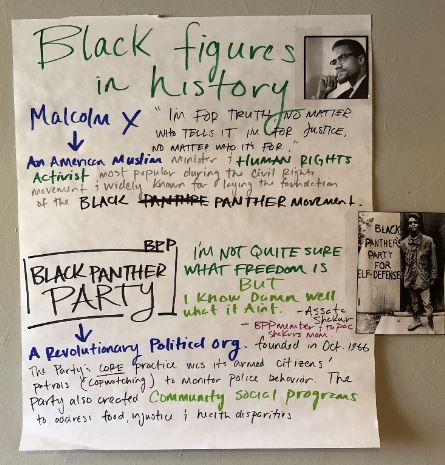 Black figures
in history
Malcolm X
"I'M FOR TRUTH, NO MATTER
WHO TELLS IT IM FOR JUSTICE,
NO MATTER WHO IT'S FOR."
An American Muslim minister & HUMAN RIGHTS
Activist most popular during the Civil Rights
movement & widely known for laying the foundation
of the BLACK PANTHRE PANTHER movement.
BPP
BLACK PANTHER
PARTY
I'M NOT QUITE SURE
WHAT FREEDOM IS
BUT
I KNOW Damn well
what it Aint.
- Assata
Shakur
- BPP member & tupac
shakurs mom
A Revolutionary Political org. founded in Oct. 1966
The Party's CORE practice was its armed citizens'
patrols ("copwatching") to monitor police behavior. The
Party also created Community Social programs
to address food injustice & health disparities
BLACK
PANTHER
PARTY
FOR
SELF-DEFENSE